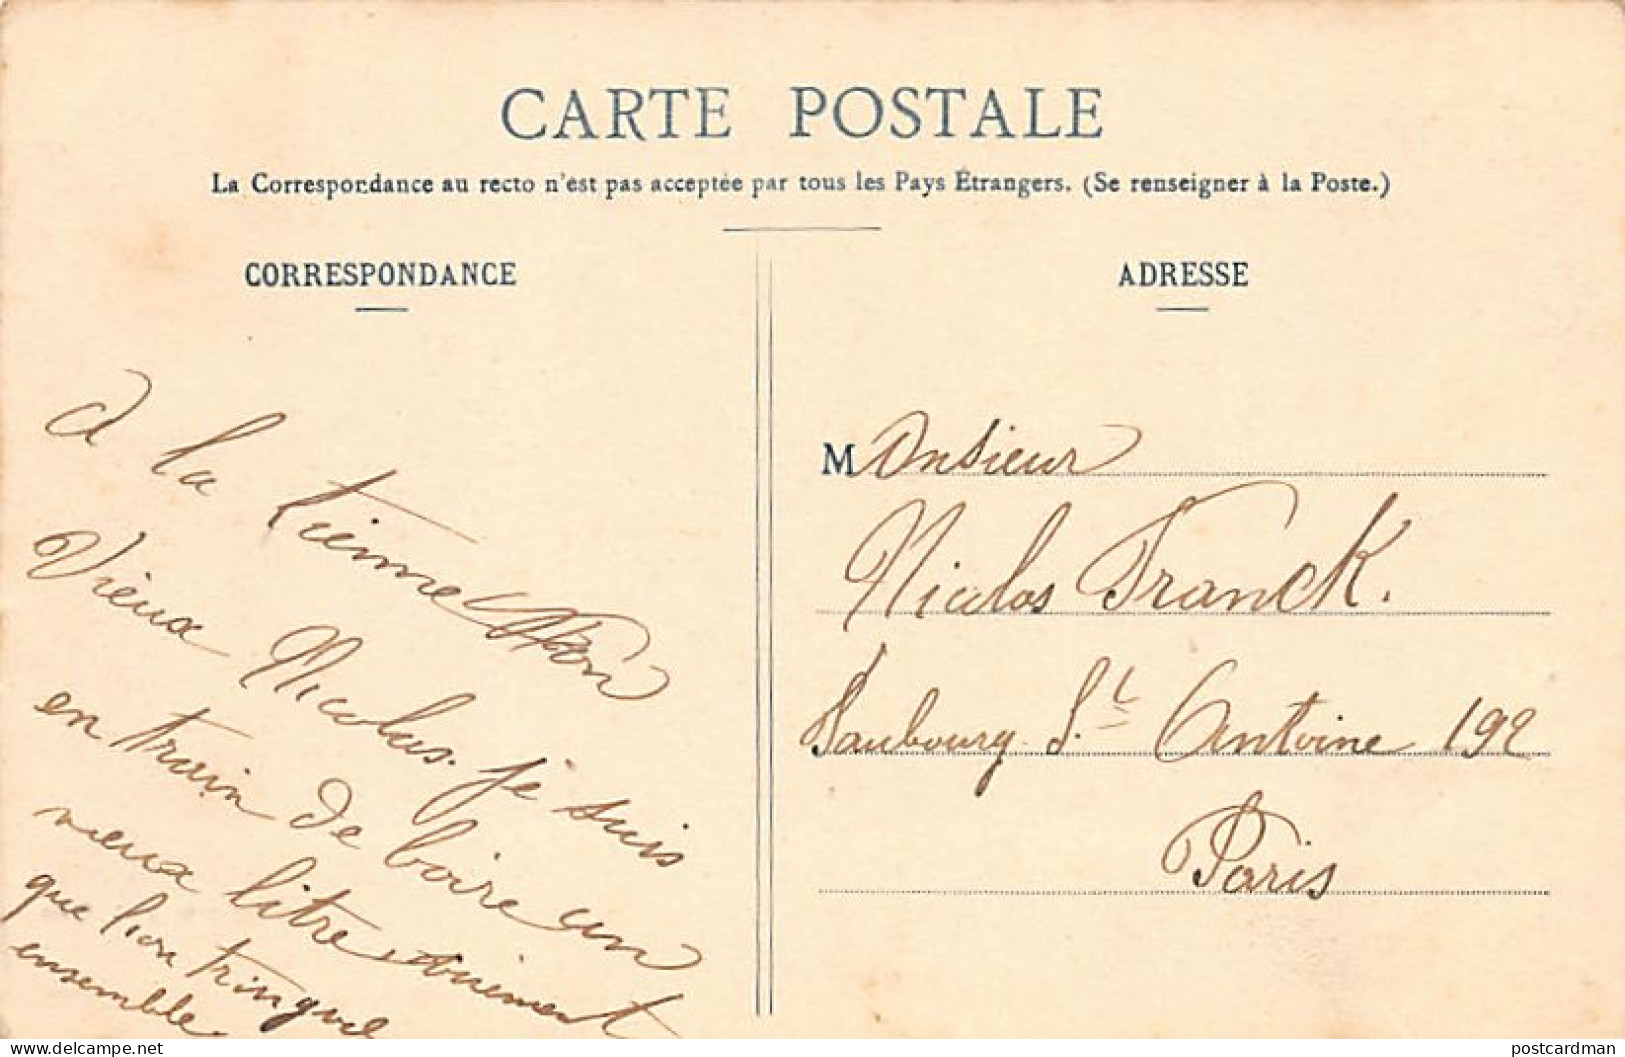 CARTE POSTALE
La Correspondance au recto n'est pas acceptée par tous les Pays Étrangers. (Se renseigner à la Poste.)
CORRESPONDANCE
A la tienne Mon
Vieux Nicolas. je suis
en train de boire un
vieux litre vivement
que l'on tringue
ensemble
ADRESSE
Monsieur
Nicolas Franck.
Faubourg St Antoine 192
Paris
delcampe.net
postcardman